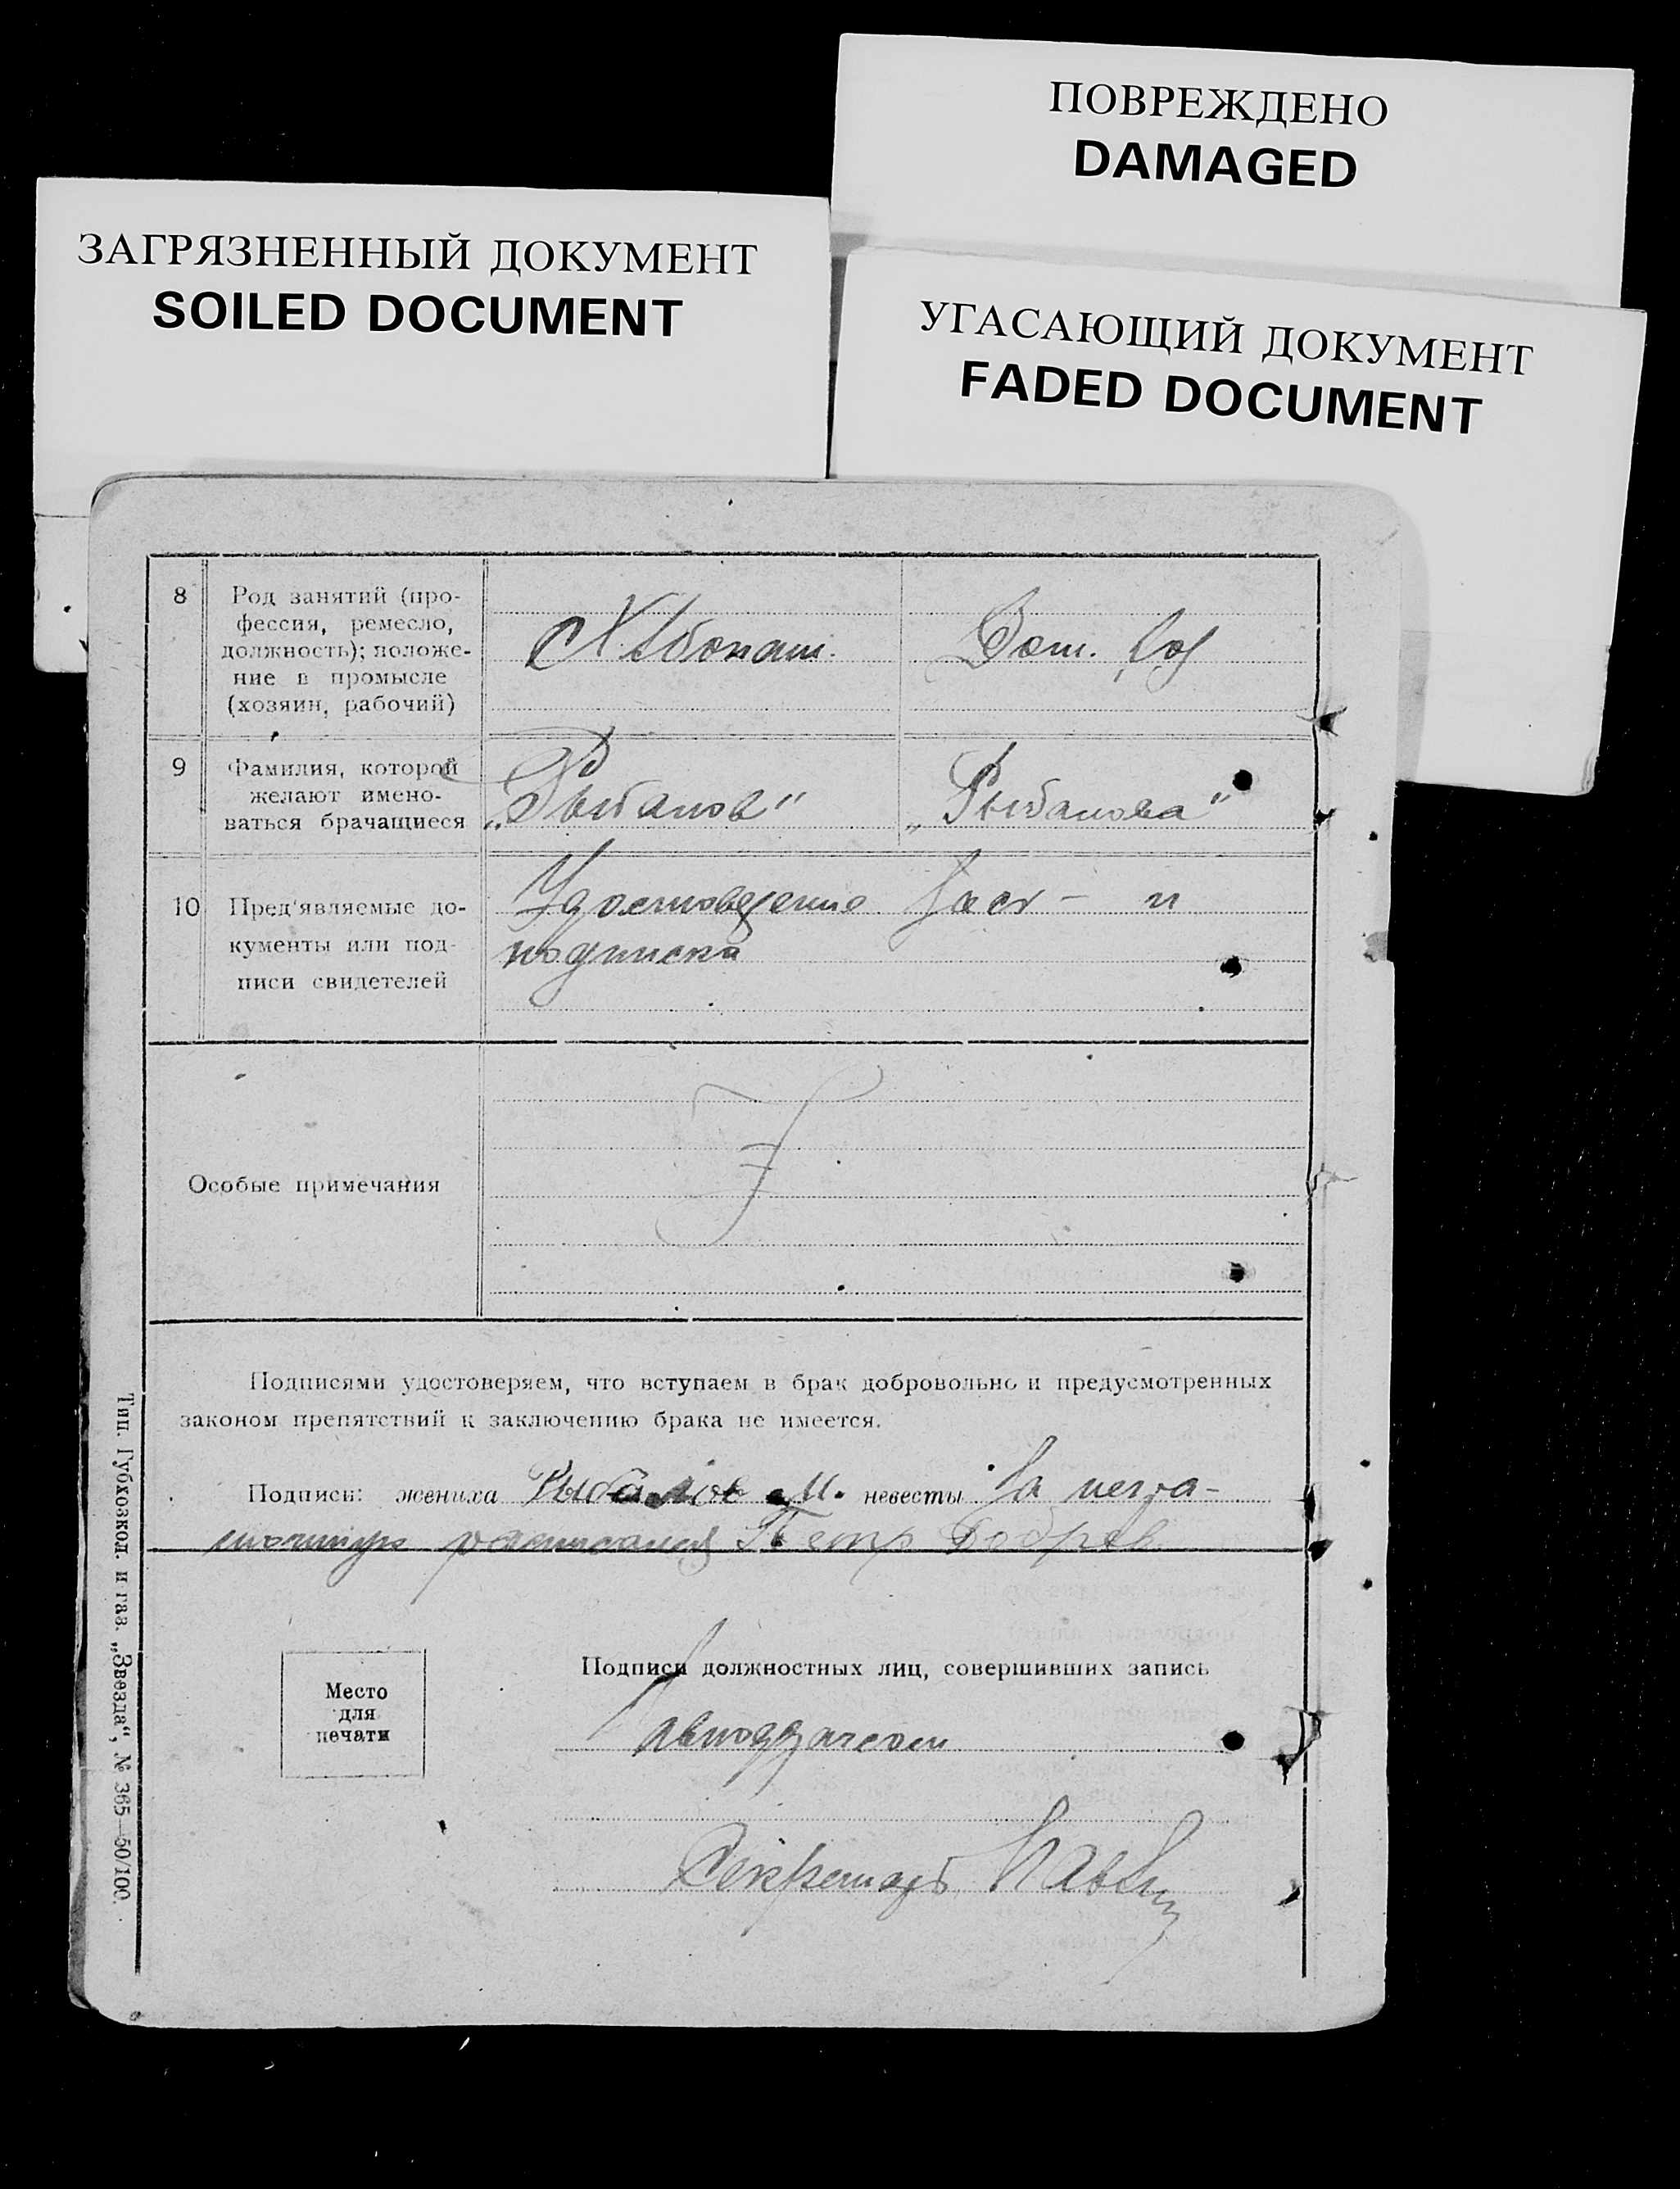 ПОВРЕЖДЕНО
DAMAGED
ЗАГРЯЗНЕННЫЙ ДОКУМЕНТ
SOILED DOCUMENT
УГАСАЮЩИЙ ДОКУМЕНТ
FADED DOCUMENT
8
Род занятий (про-
фессия, ремесло,
должность); положе-
ние в промысле
(хозяин, рабочий)
Хлебопаш.
Дом. хоз
9
Фамилия, которой
желают имено-
ваться брачащиеся
„Рыбалов"
„Рыбалова"
10
Пред'являемые до-
кументы или под-
писи свидетелей
Удостоверение и
подписка
Особые примечания
Подписями удостоверяем, что вступаем в брак добровольно и предусмотренных
законом препятствий к заключению брака не имеется.
Подписи: жениха Рыбалов М. невесты За негра-
мотную расписался Петр Бобрев
Место
для
печати
Подписи должностных лиц, совершивших запись
Секретарь
Тип. Губкозкол. и газ. „Звезда", № 365—50/100.